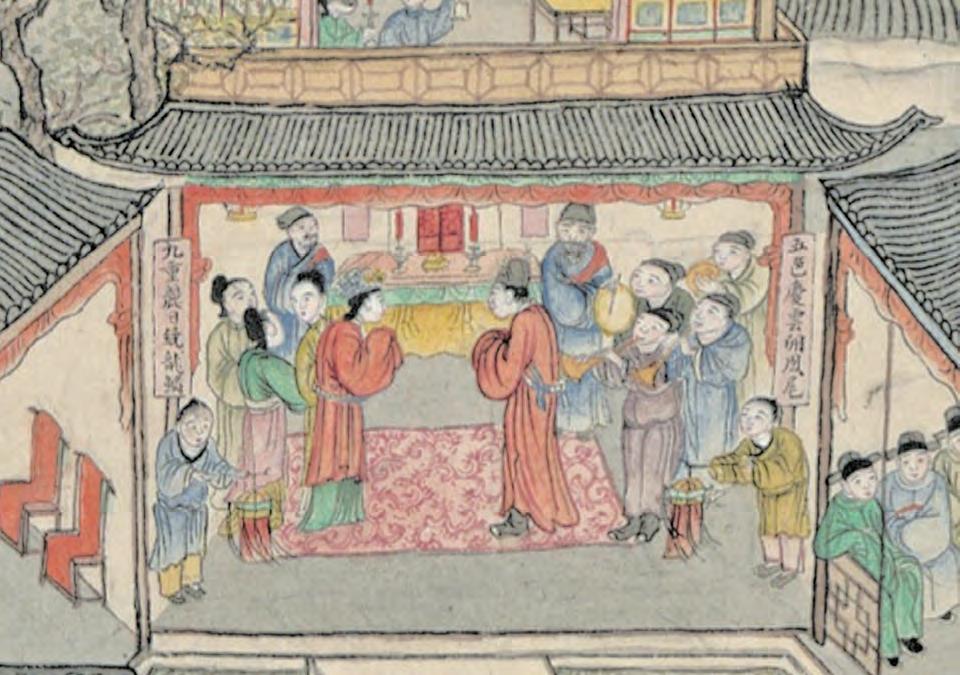 五色慶雲附鳳尾
九重麗日繞龍鱗